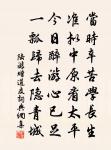 當時辛苦學長生
準擬東封看太平
今日醉游心已足
一瓢歸去隱青城
陸游贈道友詞典網專